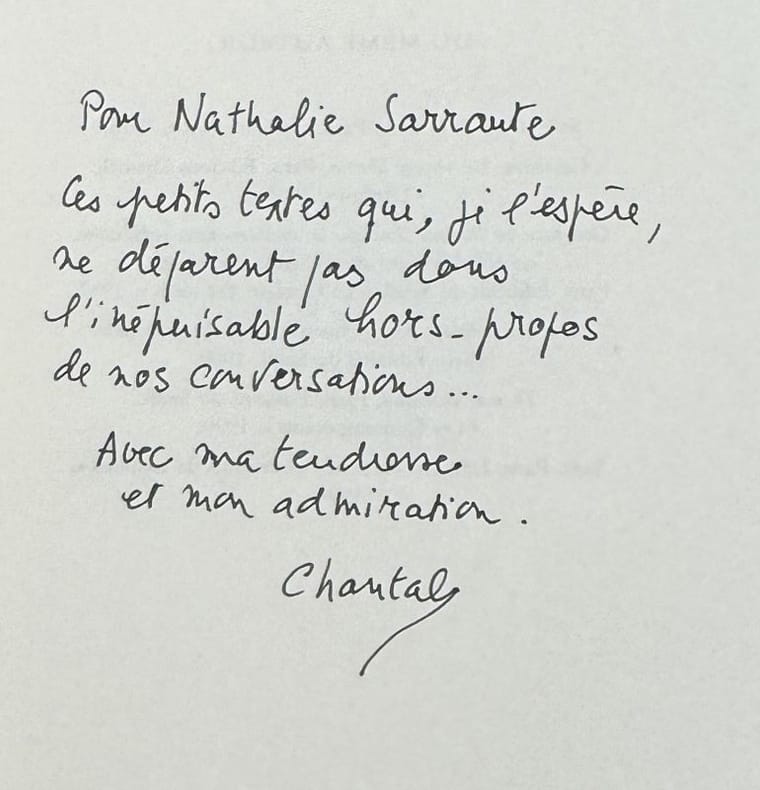 Pour Nathalie Sarraute
Ces petits textes qui, je l'espère,
ne déparent pas dans
l'inépuisable hors-propos
de nos conversations...
Avec ma tendresse
et mon admiration.
Chantal